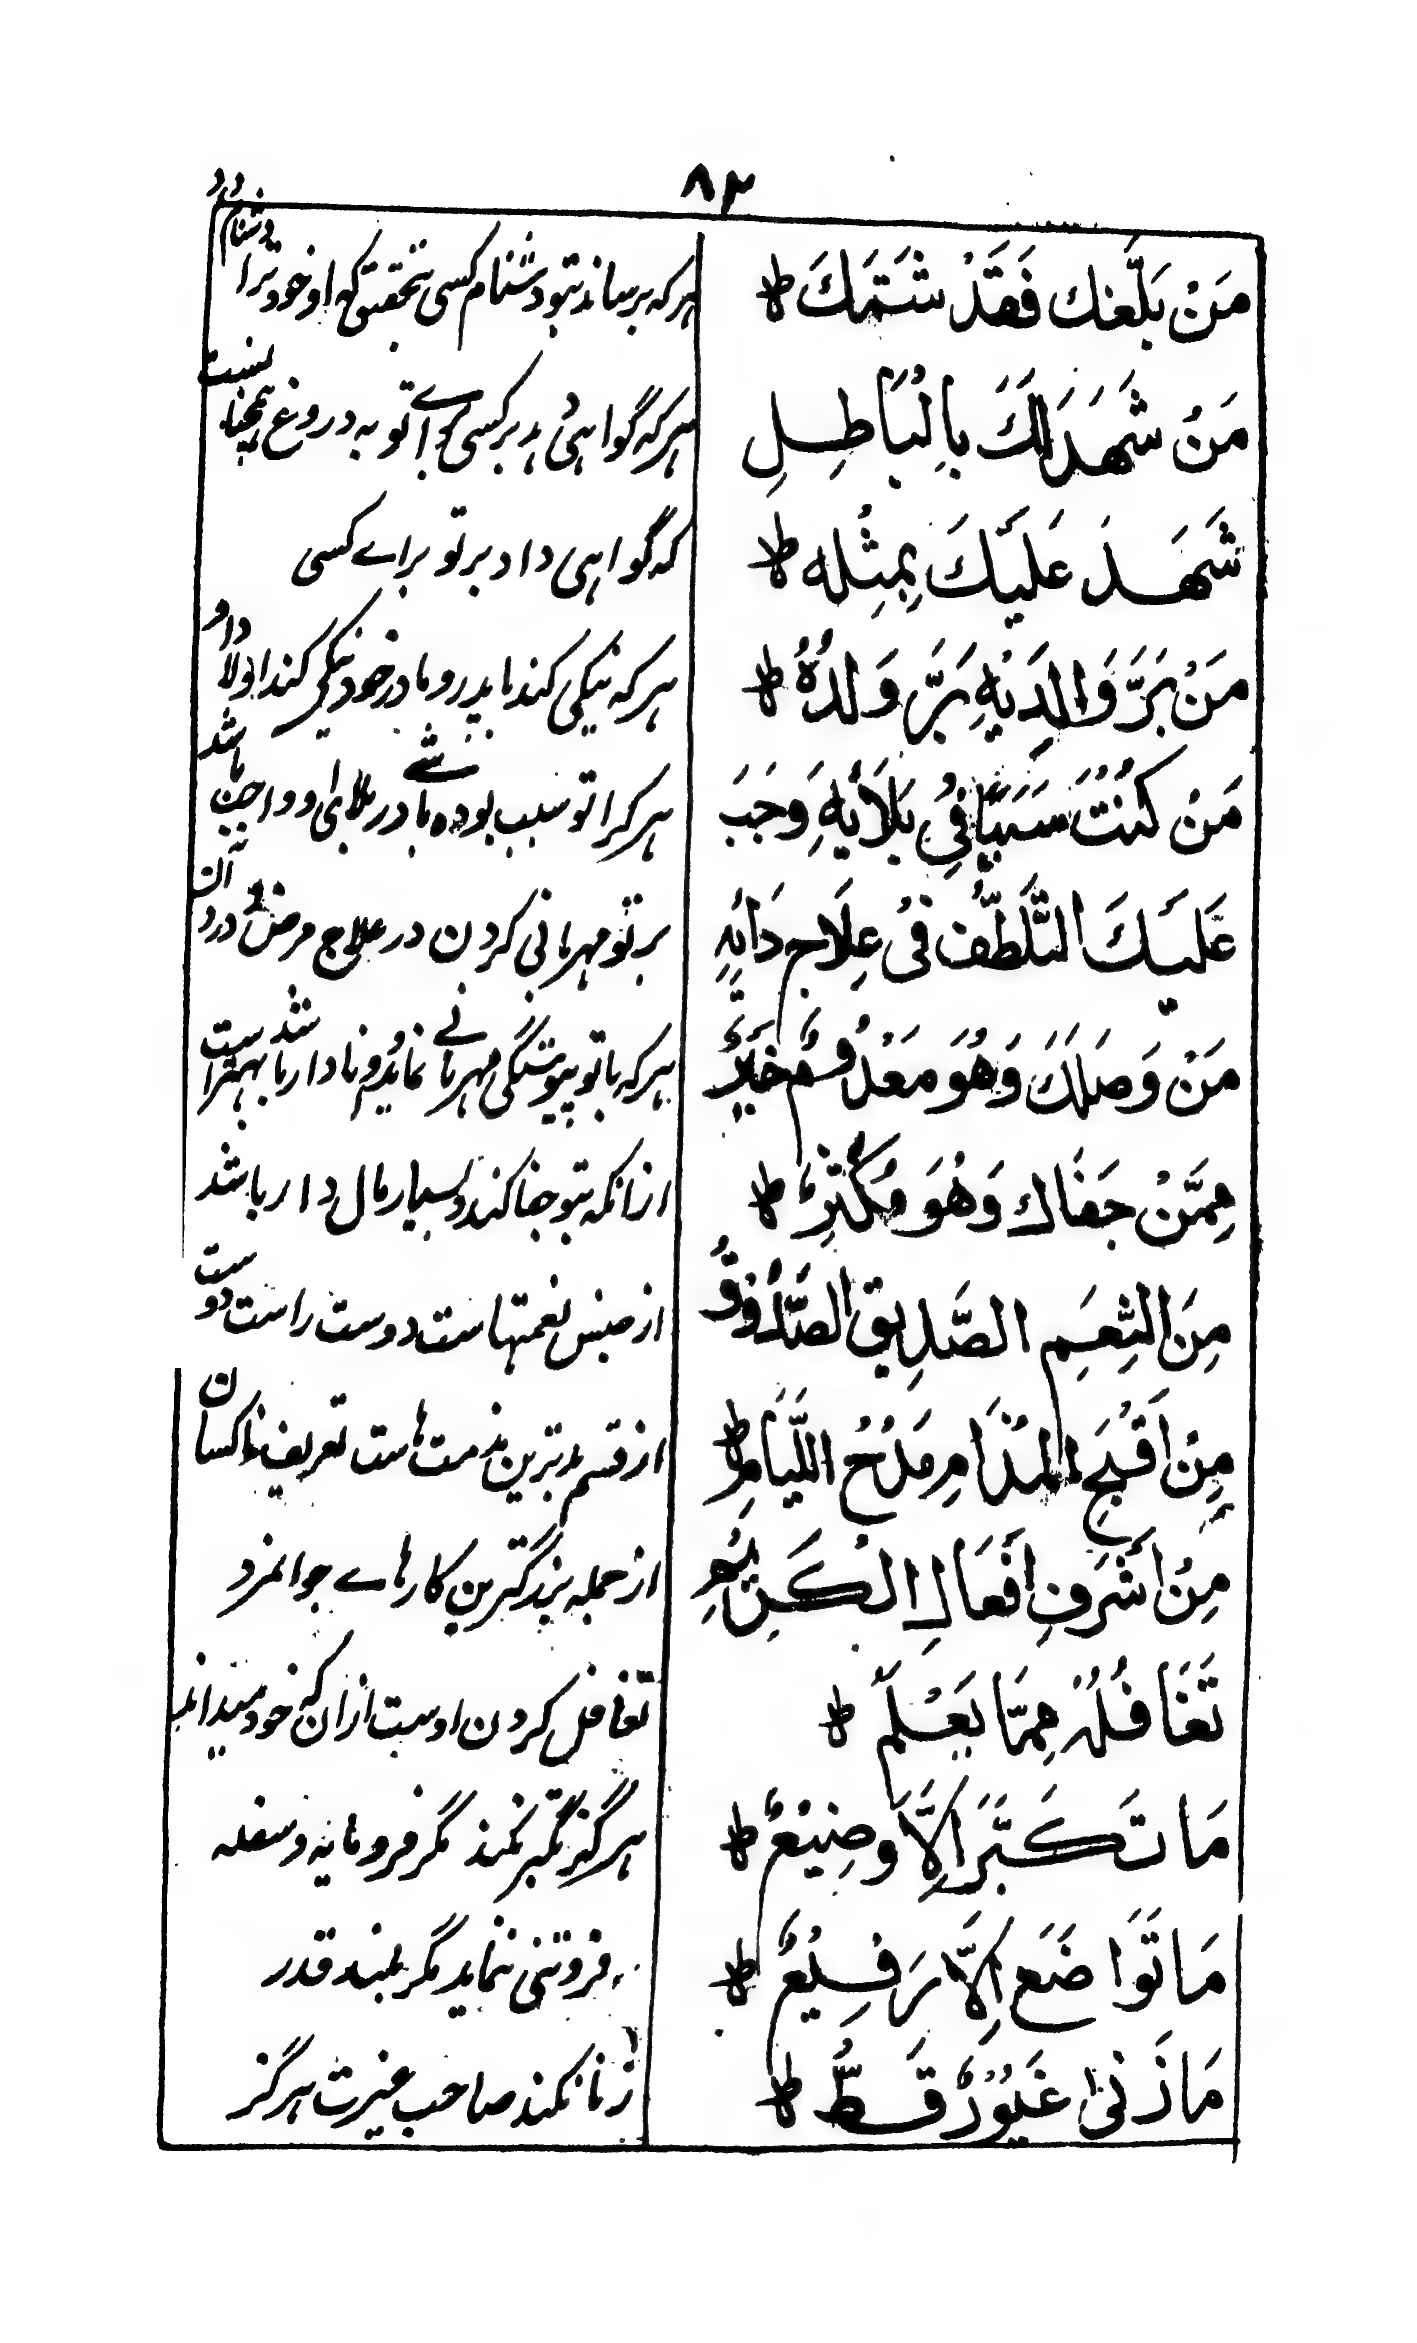 ۸۳
مَنْ بَلَّغَكَ فَقَدْ شَتَمَكَ ط
هرکه برساند بتو دشنام کسی بتحقیق که او خود ترا دشنام داد
مَنْ شَهَدَ لَكَ بِالْبَاطِلِ
هرکه گواهی دهد بر کسی براے تو به دروغ همچنانست
شَهَدَ عَلَيْكَ بِمِثْلِهِ ط
که گواهی داد بر تو براے کسی
مَنْ بَرَّ وَالِدَيْهِ بَرَّ وَلَدُهُ ط
هرکه نیکی کند با پدر و مادر خود نیکی کند اولاد او
مَنْ كُنْتَ سَبَبًا فِيْ بَلَائِهِ وَجَبَ
هرکرا تو سبب بوده باشے در بلای او واجب باشد
عَلَيْكَ التَّلَطُّفُ فِيْ عِلَاجِ دَائِهِ
بر تو مهربانی کردن در علاج مرض و درد آن
مَنْ وَصَلَكَ وَهُوَ مُعْدِمٌ خَيْرٌ
هرکه با تو پیوستگی مهربانے نماید و نادار باشد بهتر است
مِمَّنْ جَفَاكَ وَهُوَ مُكْثِرٌ ط
ازانکه بتو جفا کند و بسیار مال دار باشد
مِنَ النِّعَمِ الصَّدِيْقُ الصَّدُوْقُ
از جنس نعمتهاست دوست راست دوست
مِنْ اَقْبَحِ الْمَذَامِ مَدْحُ اللِّيَامِ ط
از قسم بدترین مذمت هاست تعریف ناکسان
مِنْ اَشْرَفِ اَفْعَالِ الْكَرِيْمِ
از جمله بزرگترین کارهاے جوانمرد
تَغَافُلُهُ مِمَّا يَعْلَمُ ط
تغافل کردن اوست ازان که خود میداند
مَا تَكَبَّرَ اِلَّا وَضِيْعٌ ط
هرگز تکبر نکند مگر فرومایه و سفله
مَا تَوَاضَعَ اِلَّا رَفِيْعٌ ط
فروتنی ننماید مگر بلند قدر
مَا زَنٰى غَيُوْرٌ قَطُّ ط
زنا نکند صاحب غیرت هرگز